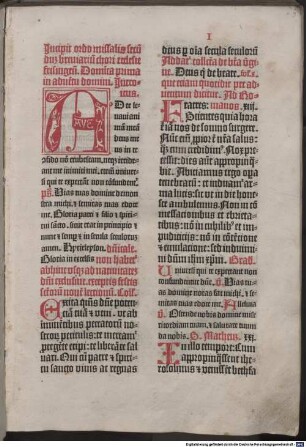 I
Incipit ordo missalis secũ
dũs breviariũ chori ecclesie
frisingeñ. Dominica prima
in adventu domini. Intro-
itus.
AVE
D te le-
vavi ani
mã meã
deus me
us in te
cõfido nõ erubescam, neqz irride-
ant me inimici mei, etenĩ univer-
si qui te expectãt non cõfundent̃.
ps̃. Vias tuas domine demon-
stra michi, et semitas tuas edoce
me. Gloria patri et filio et spiri-
tui sancto. Sicut erat in principio et
nunc et semp et in secula seculorum
amen. Kyrieleyson. dñicale.
Gloria in excelsis non habet̃
dñi exclusive. exceptis festis
Excita qũs dñe poten-
tiã tuã et veni. ut ab
iminẽtibus peccatorũ no-
strorũ periculis. te meream̃
pregẽte eripi. te liberãte sal-
vari. Qui cũ patre et spiritu
sancto vivis et regnas
dius p oĩa secula seculorũ
Deus q̃ de beate.
Fratres:
Scientes quia ho-
ra ẽ nos de somno surgere.
Nũc em̃ ppior ẽ nrã salus:
q̃ cum credidim9. Nox pces-
sit: dies aut̃ appropinqũa-
bit. Abiiciamus ergo opa
tenebrarũ: et induam̃ ar-
ma lucis: sic ut in die hone-
ste ambulemus. Non in cõ-
messationibus et ebrieta-
tibus: nõ in cubilib9 et im-
pudicitiis: nõ in cõtẽtione
et emulatione: sed induimini
dñm ihm xp̃m. Grad̃.
Universi qui te expectant non
confundentur dñe. Vias tu-
as domine notas fac michi, et se-
mitas tuas edoce me. Alleluia
Ostende nobis domine mise-
ricordiam tuam, et salutare tuum
da nobis. S. Matheũ. XXI.
In illo tempore: Cum
appropinquasset ihe-
rosolimis et venisset bethfa